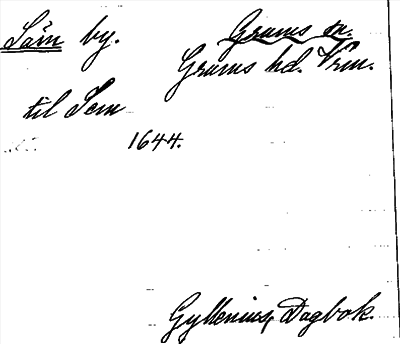 Såm by.
Grums sn.
Grums hd. Vrm.
til Som
1644.
Gyllenius, Dagbok.